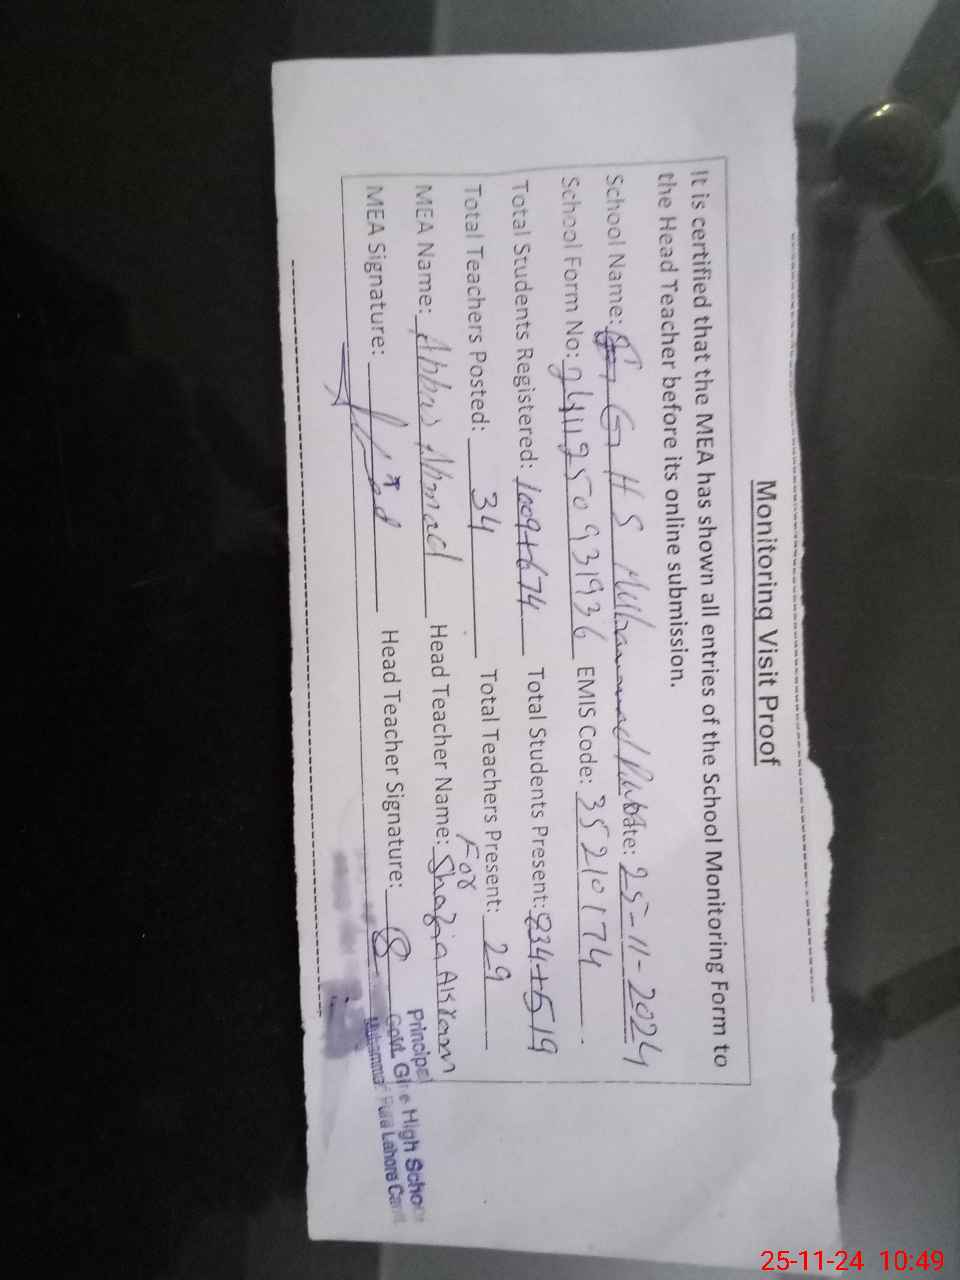 Monitoring Visit Proof
It is certified that the MEA has shown all entries of the School Monitoring Form to
the Head Teacher before its online submission.
School Name: G G H S Muhammad Pura Date: 25-11-2024
School Form No: 2411250931936 EMIS Code: 35210174
Total Students Registered: 1009+674 Total Students Present: 834+519
Total Teachers Posted: 34 Total Teachers Present: 29
MEA Name: Abbas Ahmad Head Teacher Name: For Shazia Akram
MEA Signature: Head Teacher Signature:
Principal
Govt. Girls High School
Muhammad Pura Lahore Cantt
25-11-24 10:49